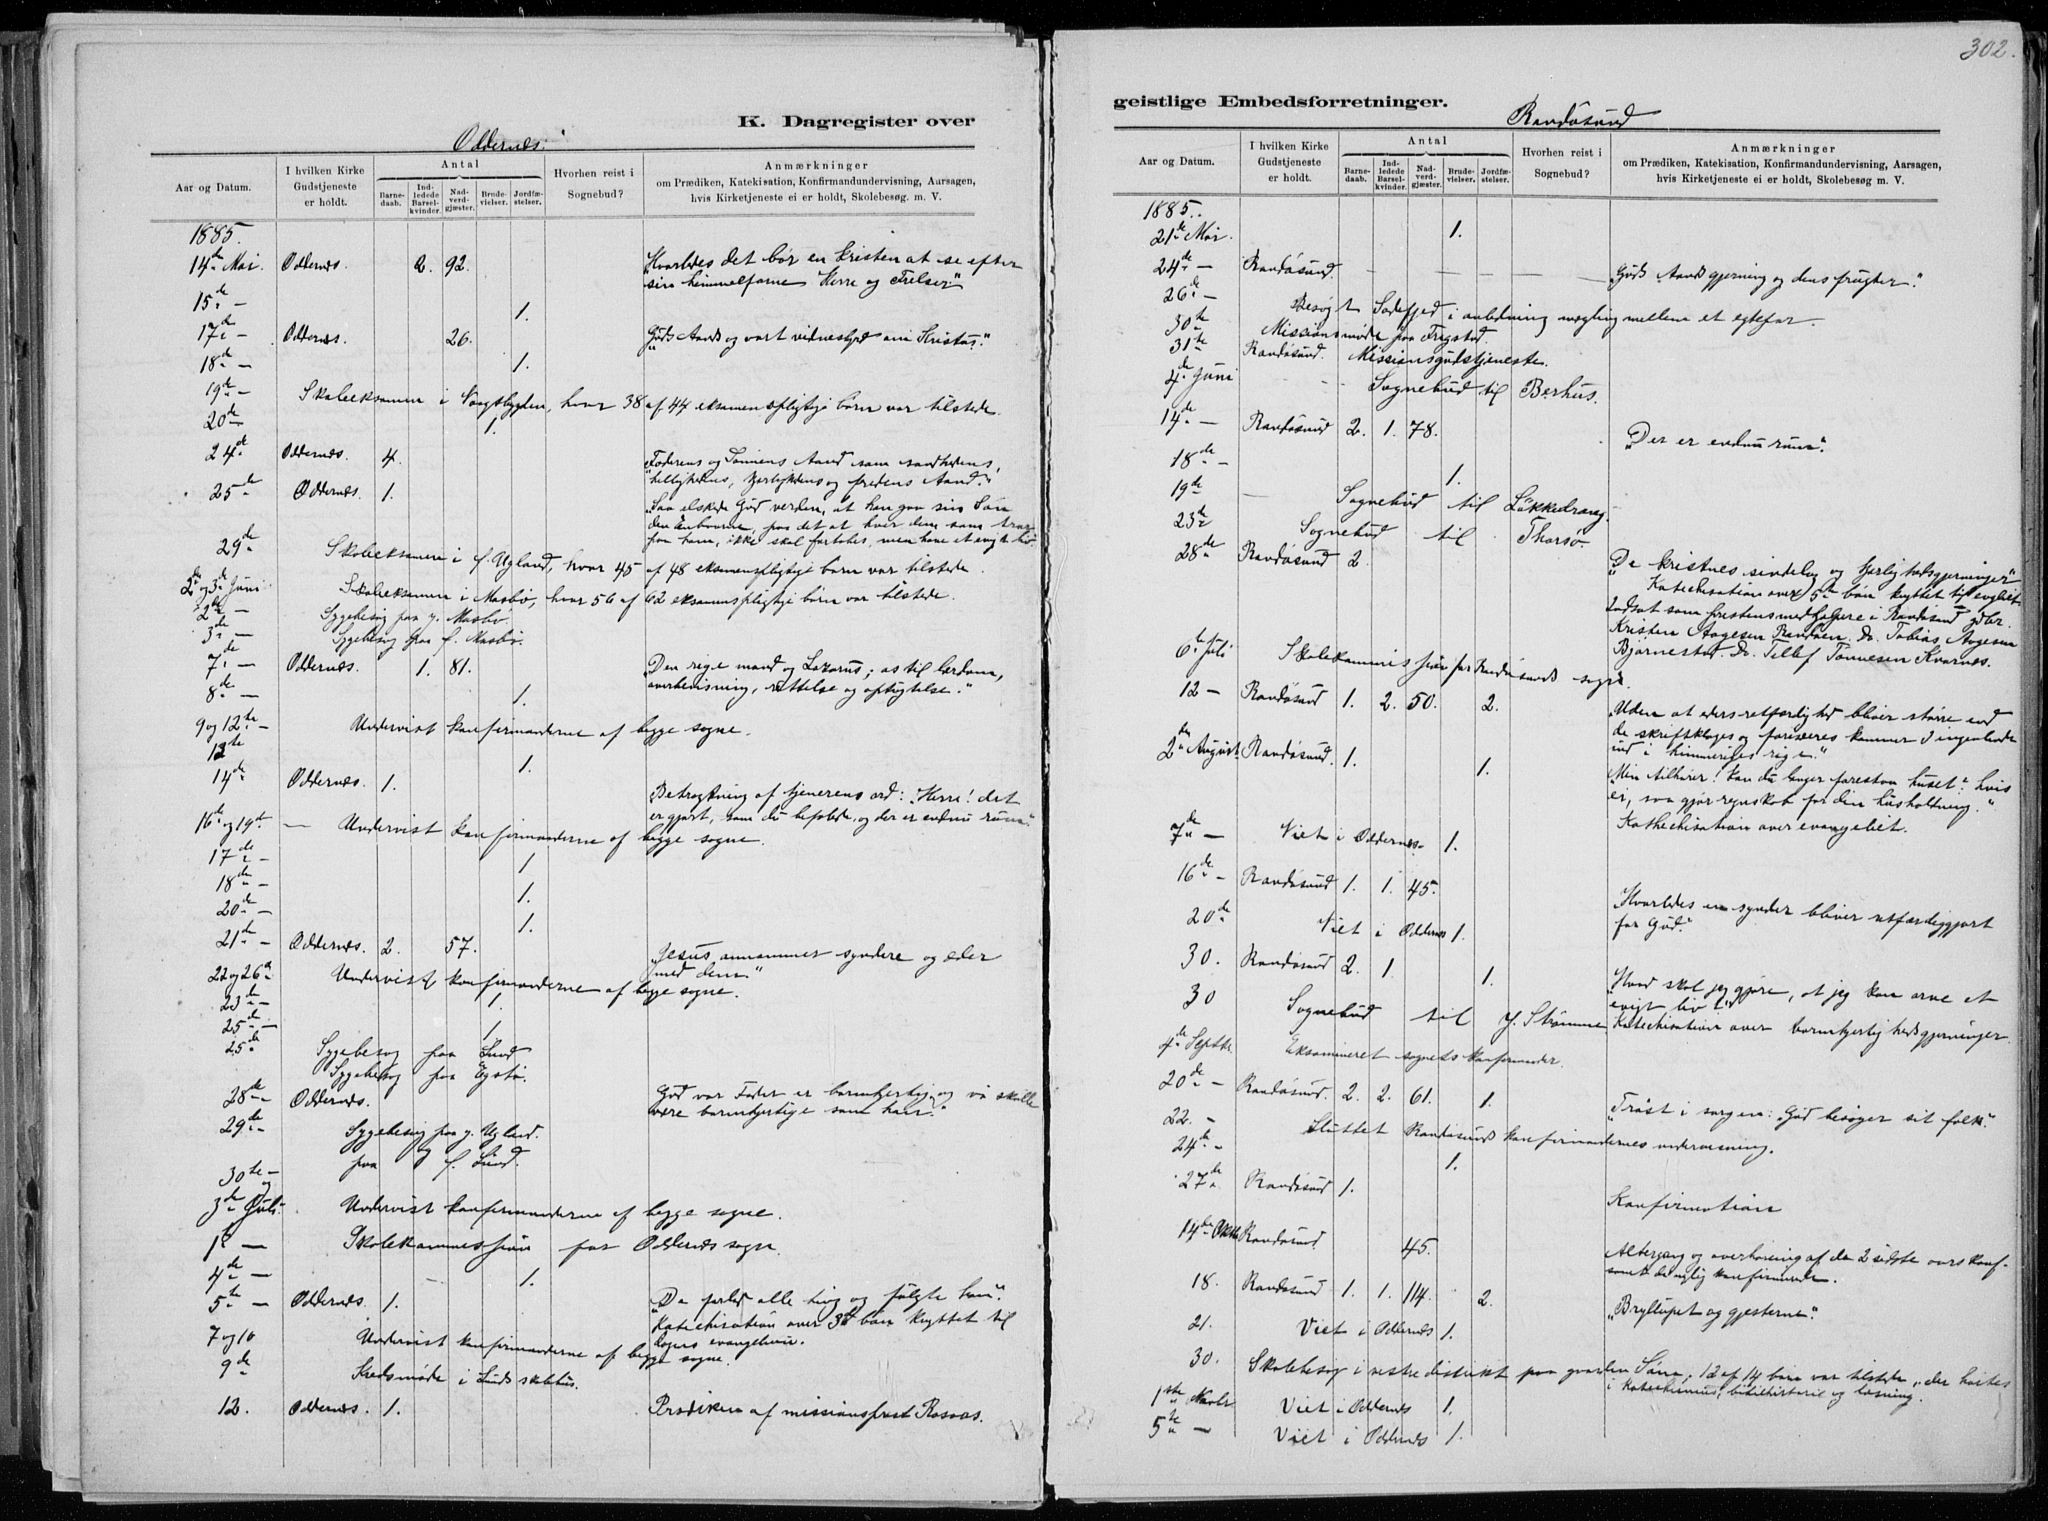 302.
K. Dagregister over
Oddernes.
Aar og Datum.
I hvilken Kirke Gudstjeneste er holdt.
Antal
Barnedaab.
Indledede Barselkvinder.
Nadverdgjæster.
Brudevielser.
Jordfæstelser.
Hvorhen reist i Sognebud?
Anmærkninger
om Prædiken, Katekisation, Konfirmandundervisning, Aarsagen,
hvis Kirketjeneste ei er holdt, Skolebesøg. m. V.
1885.
14de Mai. Oddernes. 2. 92. "Hvorledes det bør en kristen at se efter
sin himmelfarne Herre og Frelser."
15de — 1.
17de — Oddernes. 26. "Guds Aands og vort vidnesbyrd om Kristus."
18de — 1.
19de — Skoleeksamen i Vaagsbygden, hvor 38 af 44 eksamenspligtige børn var tilstede.
20de — 1.
24de Oddernes. 4. "Faderens og Sønnens Aand som sandhedens,
hellighedens, kjærlighedens og fredens Aand."
25de Oddernes. 1. "Saa elskede Gud verden, at han gav sin Søn
den enbaarne, paa det at hver den som tror
paa ham, ikke skal fortabes, men have et evigt liv
29de Skoleeksamen i f. Ugland, hvor 45 af 48 eksamenspligtige børn var tilstede.
2den og 3de Juni Skoleeksamen i Mosbø, hvor 56 af 62 eksamenspligtige børn var tilstede.
2den — Sygebesøg paa y. Mosbø.
3de — Sygebesøg paa f. Mosbø.
7de — Oddernes. 1. 81. "Den rige mand og Lazarus; os til lærdom,
overbevisning, rettelse og optugtelse."
8de — 1.
9 og 12te — Undervist konfirmanderne af begge sogne.
12te 1.
14de Oddernes. 1. Betragtning af tjenerens ord: "Herre! det
er gjort, som du befolede, og der er endnu rum."
16de og 19de. — Undervist konfirmanderne af begge sogne.
17de — 1
18de — 1.
20de — 1.
21de — Oddernes. 2. 57. "Jesus annammer syndere og æder
med dem."
22 og 26de Undervist konfirmanderne af begge sogne.
23de — 1.
25de — 1
25de Sygebesøg paa Lund
Sygebesøg paa Egsbø.
28de Oddernes. "Gud vor Fader er barmhjertig og vi skulle
være barmhjertige som han."
29de Sygebesøg paa y. Ugland.
og
paa f. Lund.
30te — og
3de Juli. Undervist konfirmanderne af begge sogne.
1ste — Skolekommission for Oddernes sogn.
4de — 1.
5te — Oddernes. 1. "De forlod alle ting og fulgte ham."
Katechisation over 3die bøn knyttet til
dagens evangelium.
7 og 10 Undervist konfirmanderne af begge sogne.
9de Kredsmøde i Lunds skolehus.
12. Oddernes. 1. Prædiken af missionsprest Rosaas.
geistlige Embedsforretninger.
Randøsund
Aar og Datum.
I hvilken Kirke Gudstjeneste er holdt.
Antal
Barnedaab.
Indledede Barselkvinder.
Nadverdgjæster.
Brudevielser.
Jordfæstelser.
Hvorhen reist i Sognebud?
Anmærkninger
om Prædiken, Katekisation, Konfirmandundervisning, Aarsagen,
hvis Kirketjeneste ei er holdt, Skolebesøg m. V.
1885.
21de Mai. 1.
24de — Randøsund. — — — — — — "Guds Aands gjerning og dens frugter."
26de — Besøgt Sodefjed i anledning mægling mellem et egtepar.
30te Missionsmøde paa Frigstad.
31te Randøsund. Missionsgudstjeneste.
4de Juni Sognebud til Berhus.
14de — Randøsund 2. 1. 78. "Der er endnu rum."
18de — 1.
19de — Sognebud til Løkkedrang.
23de Sognebud til Tharsø.
28de Randøsund 2. "De kristnes sindelag og kjærlighedsgjerninger"
Katechisation over 5te bøn knyttet til evgliet.
Indsat som prestens medhjelpere i Randøsund gdbr.
Kristen Aagesen Randøen. do. Tobias Aagesen
Bjørnestad. do. Tellef Tønnesen Kvarnes.
6te Juli Skolekommission for Randøsunds sogn.
12 — Randøsund 1. 2. 50. 2. "Uden at eders retfærdighed bliver større end
de skriftkloges og farisæeres kommer I ingenlunde
ind i himmeriges rige."
2den August. Randøsund. 1. 1. "Min tilhører! kan du længer forestaa huset? hvis
ei, saa gjør regnskab for din husholdning."
Kathechisation over evangeliet.
7de — Viet i Oddernes. 1.
16de — Randøsund 1. 1. 45. "Hvorledes en synder bliver retfærdiggjort
for Gud."
20de Viet i Oddernes 1.
30. Randøsund 2. 1. 1. "Hvad skal jeg gjøre, at jeg kan arve et
evigt liv?"
30 Sognebud til y. Strømme Katechisation over barmhjertighedsgjerninger.
4de Septbr. Eksamineret sognets konfirmander.
20de — Randøsund. 2. 2. 61. 1. "Trøst i sorgen: Gud besøger sit folk."
22. — Sluttet Randøsunds konfirmandernes undervisning.
24de — 1.
27de Randøsund 1. Konfirmation
14de Oktbr Randøsund 45. Altergang og overhøring af de 2 sidste aars konf-
samt de nylig konfirmerede.
18. Randøsund 1. 1. 114. 2. "Bryllupet og gjesterne."
21. Viet i Oddernes 1.
30. Skolebesøg i vestre distrikt paa gaarden Søm; 12 af 14 børn var tilstede, der hørtes
i Katechismus, bibelhistorie og læsning.
1ste Novbr Viet i Oddernes 1.
5te — Viet i Oddernes 1.